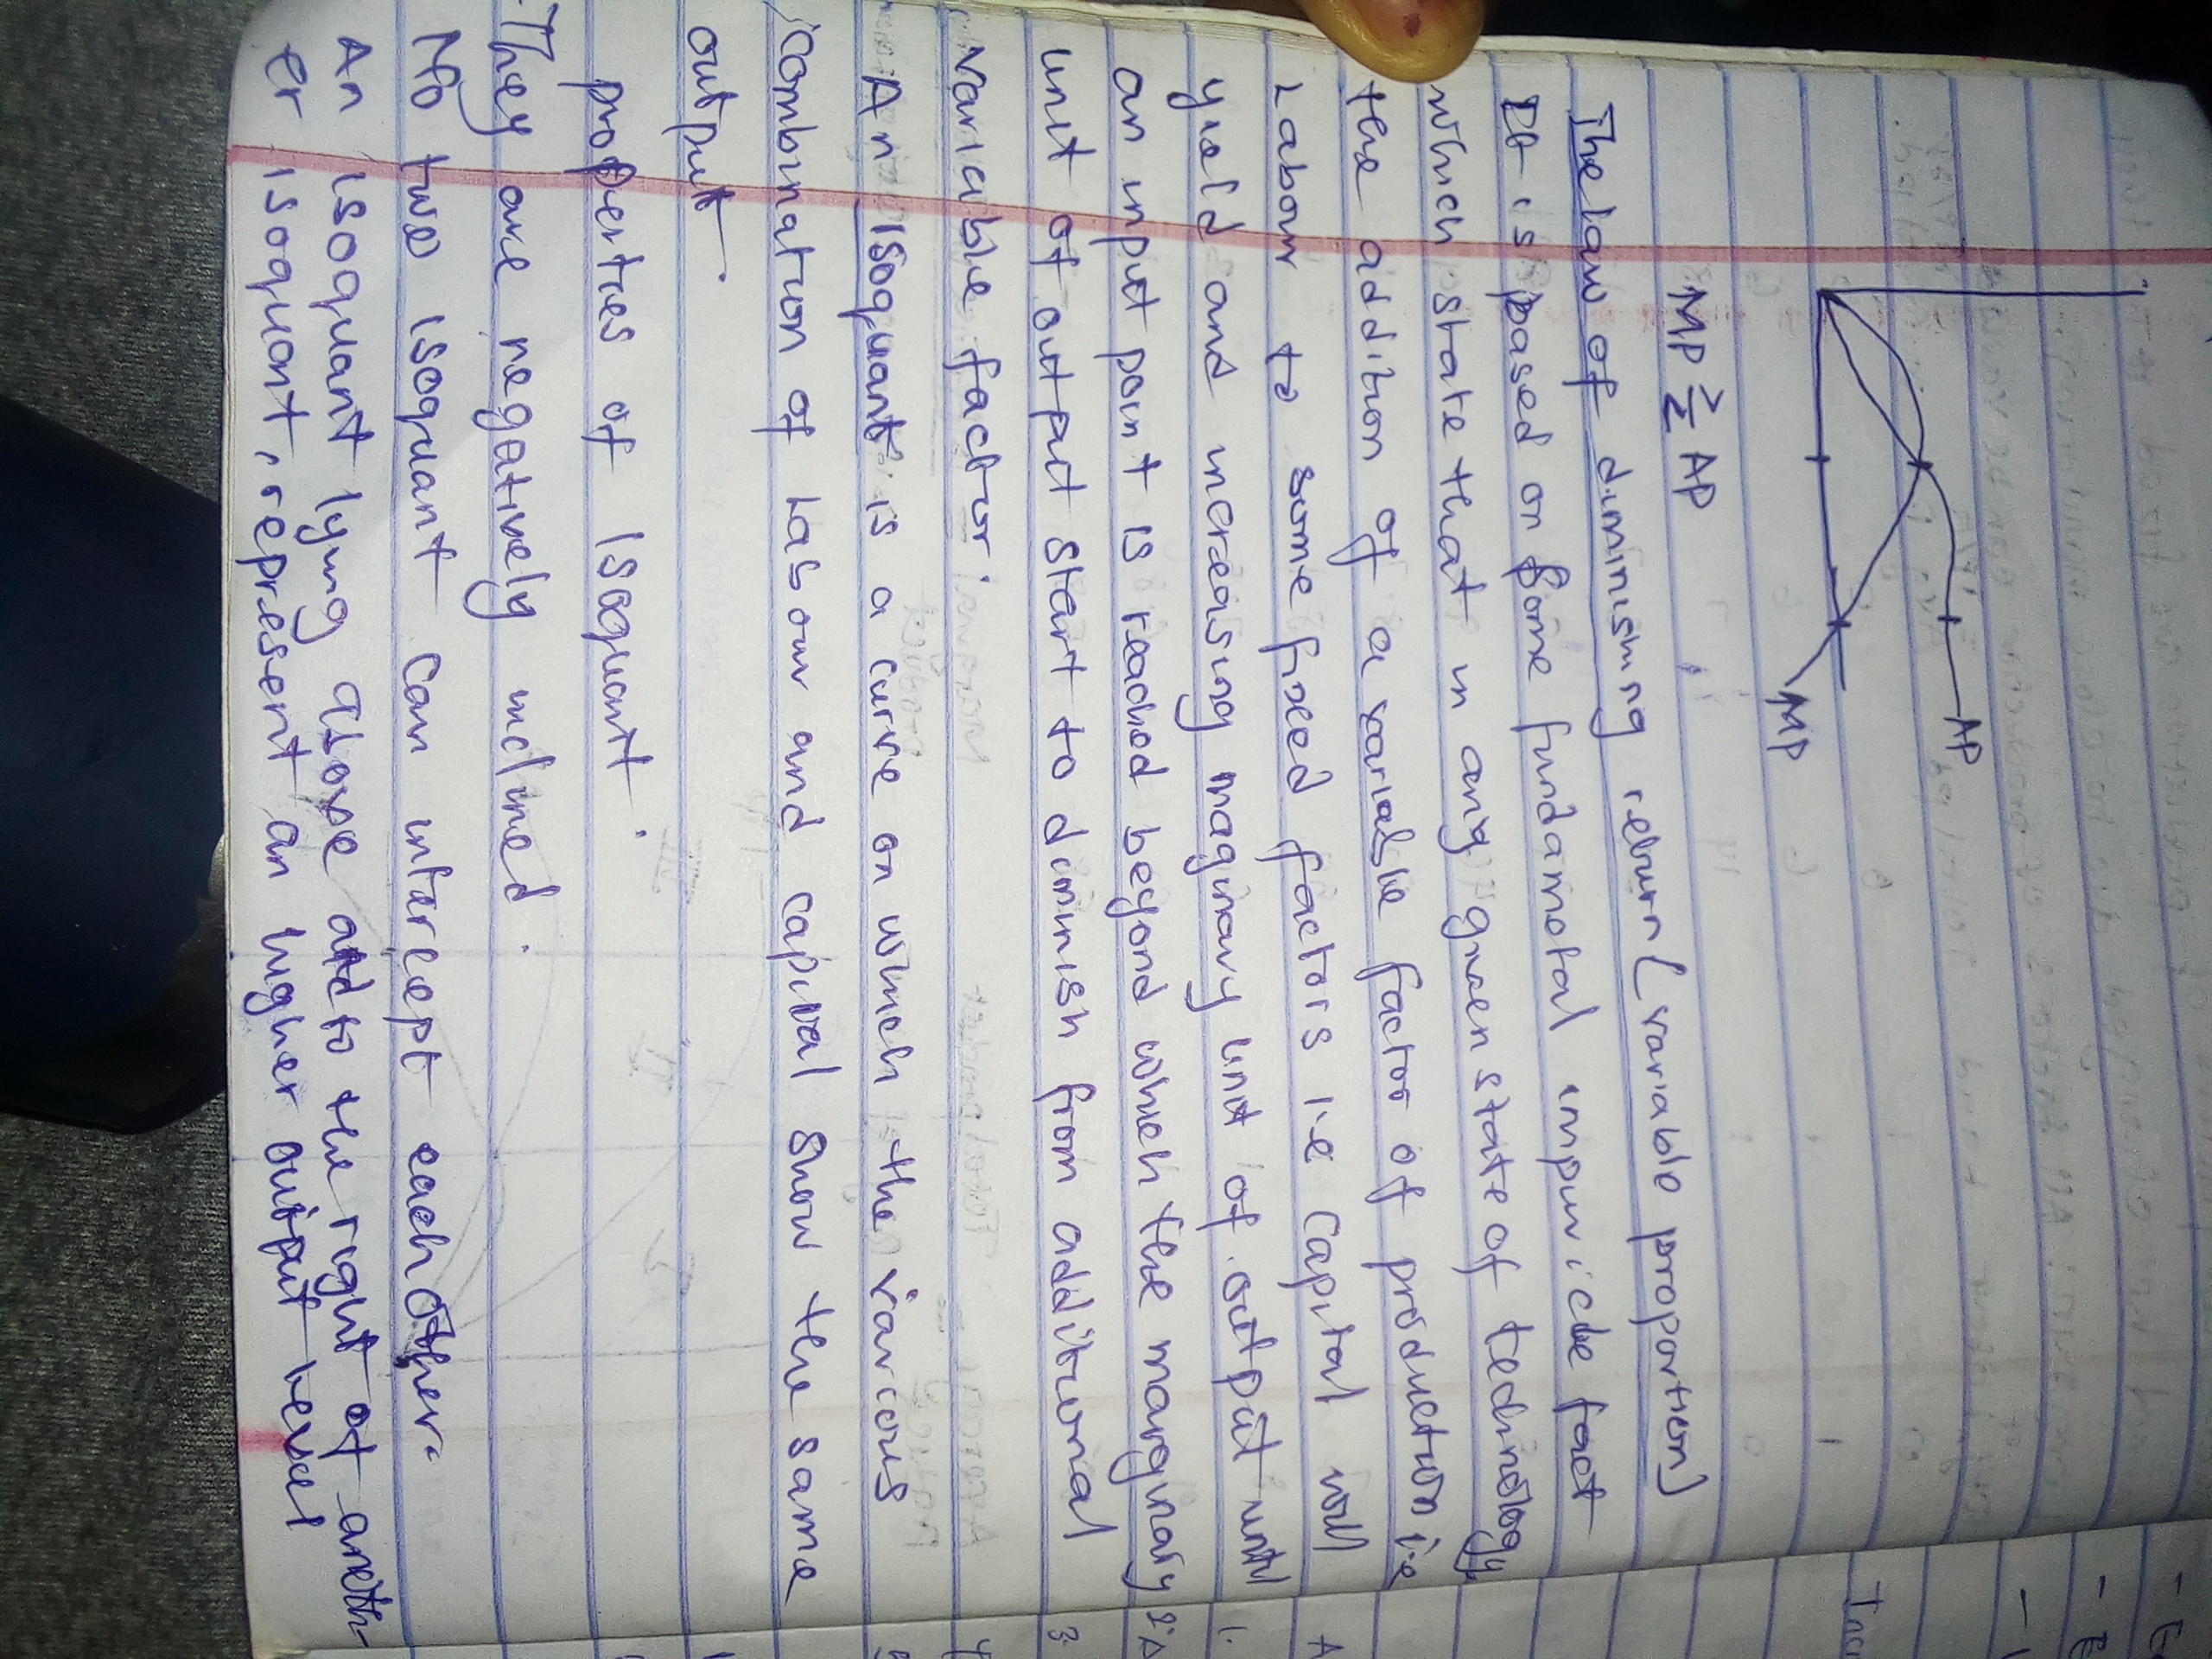 AP
MP
MP ⋛ AP
The law of diminishing return (variable proportion)
It is based on some fundametal impuricde fact
which state that in any given state of technology
the addition of a variable factor of production i.e
Labour to some fixed factors i.e Capital will
yield and increasing maginary unit of output until
an input point is reached beyond which the marginary
unit of output start to diminish from additional
variable factor.
An isoquant is a curve on which the various
combination of Labour and capital show the same
output.
properties of isoquant.
- They are negatively inclined.
No two isoquant can intercept each other.
An isoquant lying above and to the right of anoth-
er isoquant, represent an higher output level